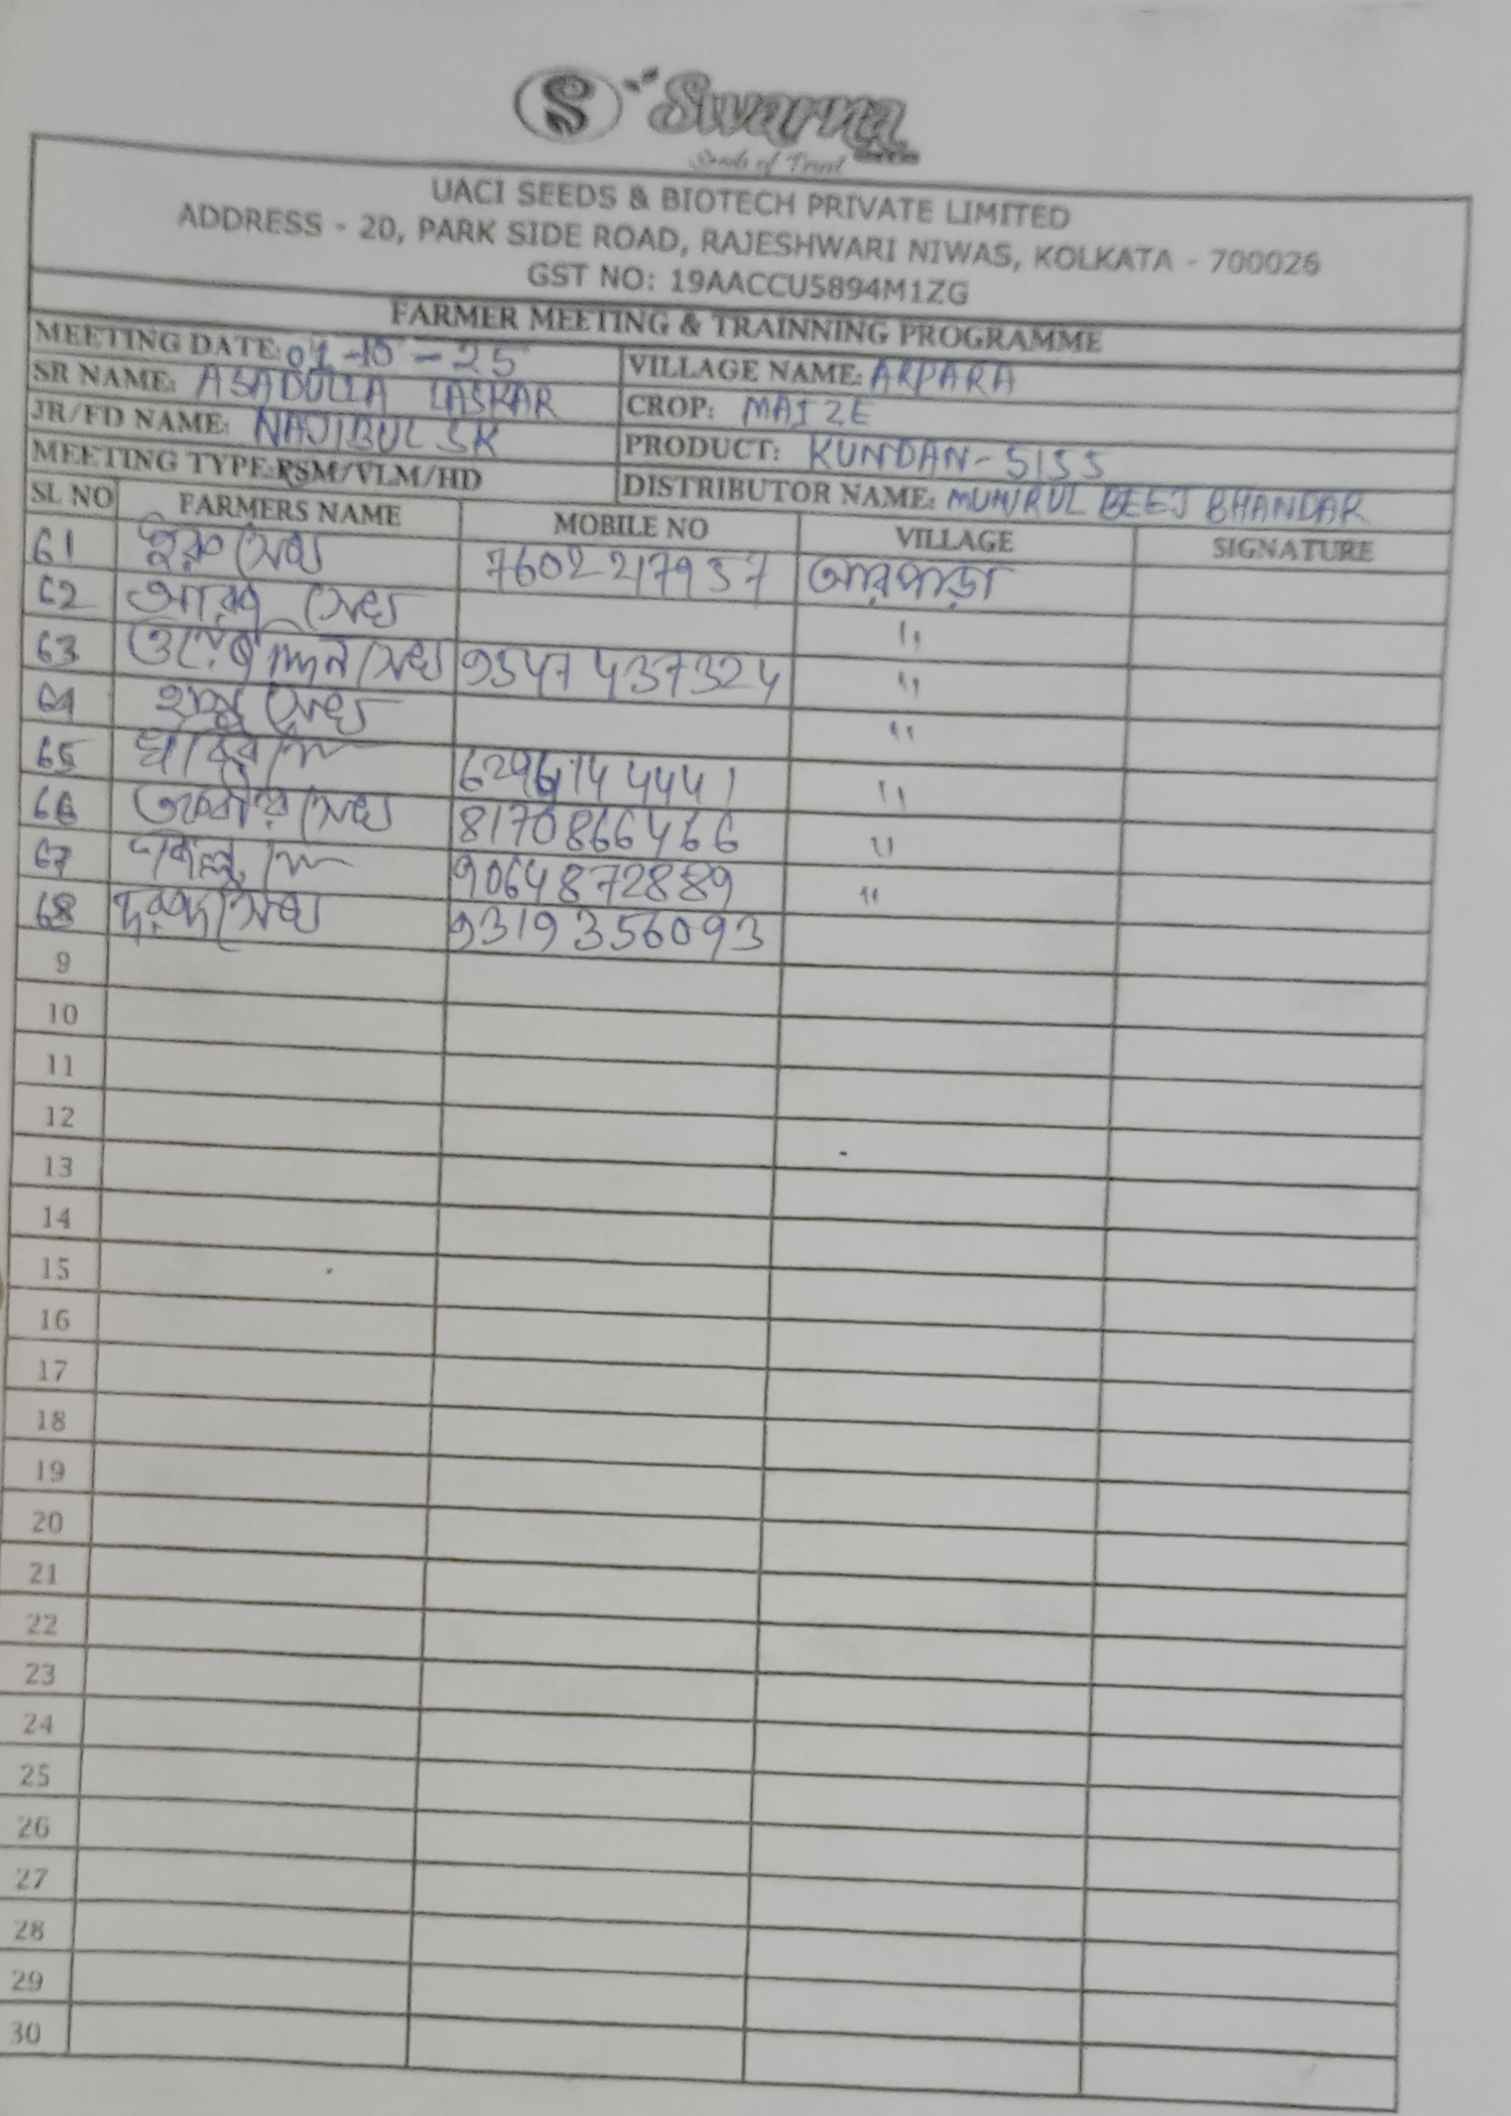 S Swarna
Seeds of Trust
UACI SEEDS & BIOTECH PRIVATE LIMITED
ADDRESS - 20, PARK SIDE ROAD, RAJESHWARI NIWAS, KOLKATA - 700026
GST NO: 19AACCU5894M1ZG
FARMER MEETING & TRAINNING PROGRAMME
MEETING DATE: 01-10-25 VILLAGE NAME: ARPARA
SR NAME: ASADULLA LASKAR CROP: MAIZE
JR/FD NAME: NAJIBUL SK PRODUCT: KUNDAN-5155
MEETING TYPE: RSM/VLM/HD DISTRIBUTOR NAME: MUNIRUL BEEJ BHANDAR
SL NO FARMERS NAME MOBILE NO VILLAGE SIGNATURE
61 সেখ 7602217957 আরপাড়া
62 সেখ "
63 সেখ 9547437324 "
64 সেখ "
65 6296144441 "
66 সেখ 8170866466 "
67 9064872889 "
68 সেখ 9319356093
9
10
11
12
13
14
15
16
17
18
19
20
21
22
23
24
25
26
27
28
29
30